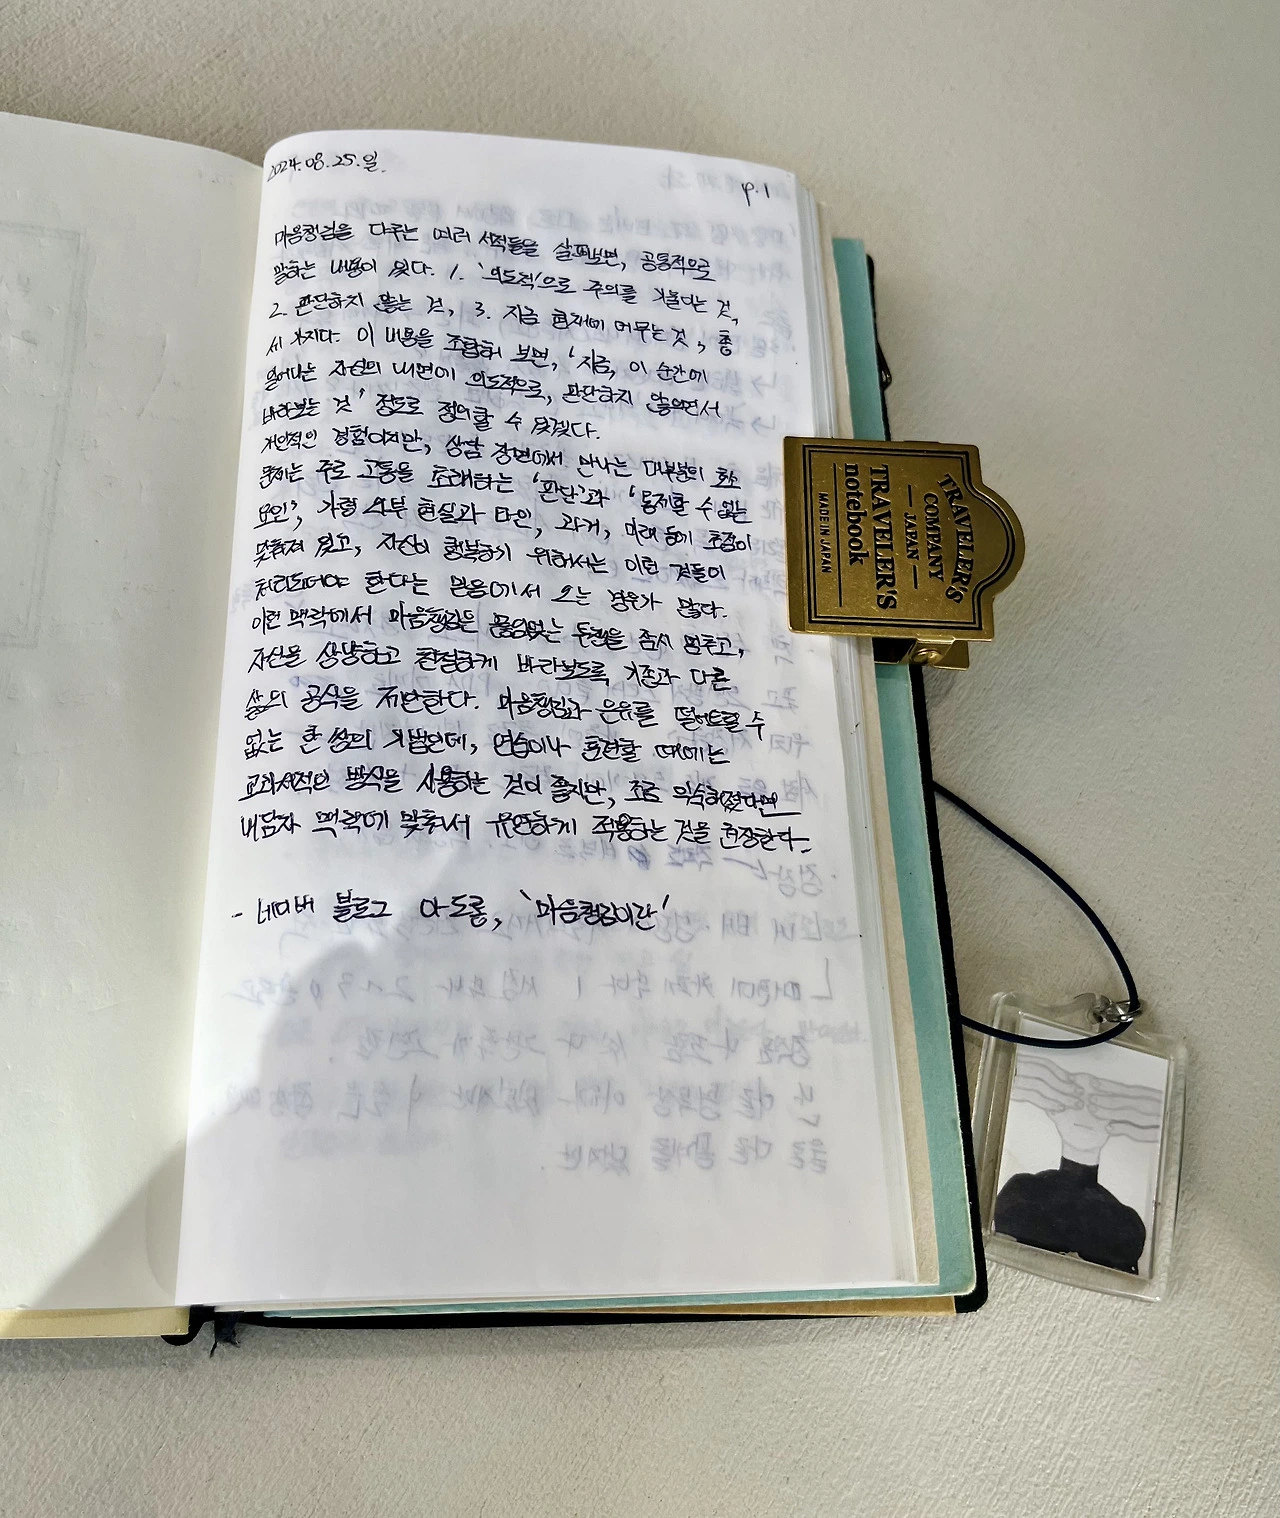 2024.08.25.일.
p.1
마음챙김을 다루는 여러 서적들을 살펴보면, 공통적으로
말하는 내용이 있다. 1. '의도적'으로 주의를 기울이는 것,
2. 판단하지 않는 것, 3. 지금 현재에 머무는 것, 총
세 가지다. 이 내용을 조합해 보면, '지금, 이 순간에
일어나는 자신의 내면에 의도적으로, 판단하지 않으면서
바라보는 것' 정도로 정의할 수 있겠다.
개인적인 경험이지만, 상담 장면에서 만나는 대부분의 호소
문제는 주로 고통을 초래하는 '판단'과 '통제할 수 없는
요인', 가령 외부 현실과 타인, 과거, 미래 등에 초점이
맞춰져 있고, 자신이 행복하기 위해서는 이런 것들이
처리되어야 한다는 믿음에서 오는 경우가 많다.
이런 맥락에서 마음챙김은 끊임없는 투쟁을 잠시 멈추고,
자신을 상냥하고 친절하게 바라보도록, 기존과 다른
삶의 공식을 제안한다. 마음챙김과 은유를 떨어트릴 수
없는 한 쌍의 기법인데, 연습이나 훈련할 때에는
교과서적인 방식을 사용하는 것이 좋지만, 조금 익숙해졌다면
내담자 맥락에 맞춰서 유연하게 적용하는 것을 권장한다.
- 네이버 블로그 아도롱, '마음챙김이란'
TRAVELER'S
COMPANY
— JAPAN —
TRAVELER'S
notebook
MADE IN JAPAN